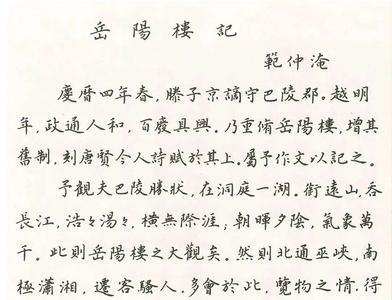 岳陽樓記
範仲淹
慶曆四年春，滕子京謫守巴陵郡。越明
年，政通人和，百廢具興。乃重脩岳陽樓，增其
舊制，刻唐賢今人詩賦於其上。屬予作文以記之。
予觀夫巴陵勝狀，在洞庭一湖。銜遠山，吞
長江，浩々湯々，橫無際涯；朝暉夕陰，氣象萬
千。此則岳陽樓之大觀矣。然則北通巫峽，南
極瀟湘，遷客騷人，多會於此，覽物之情，得